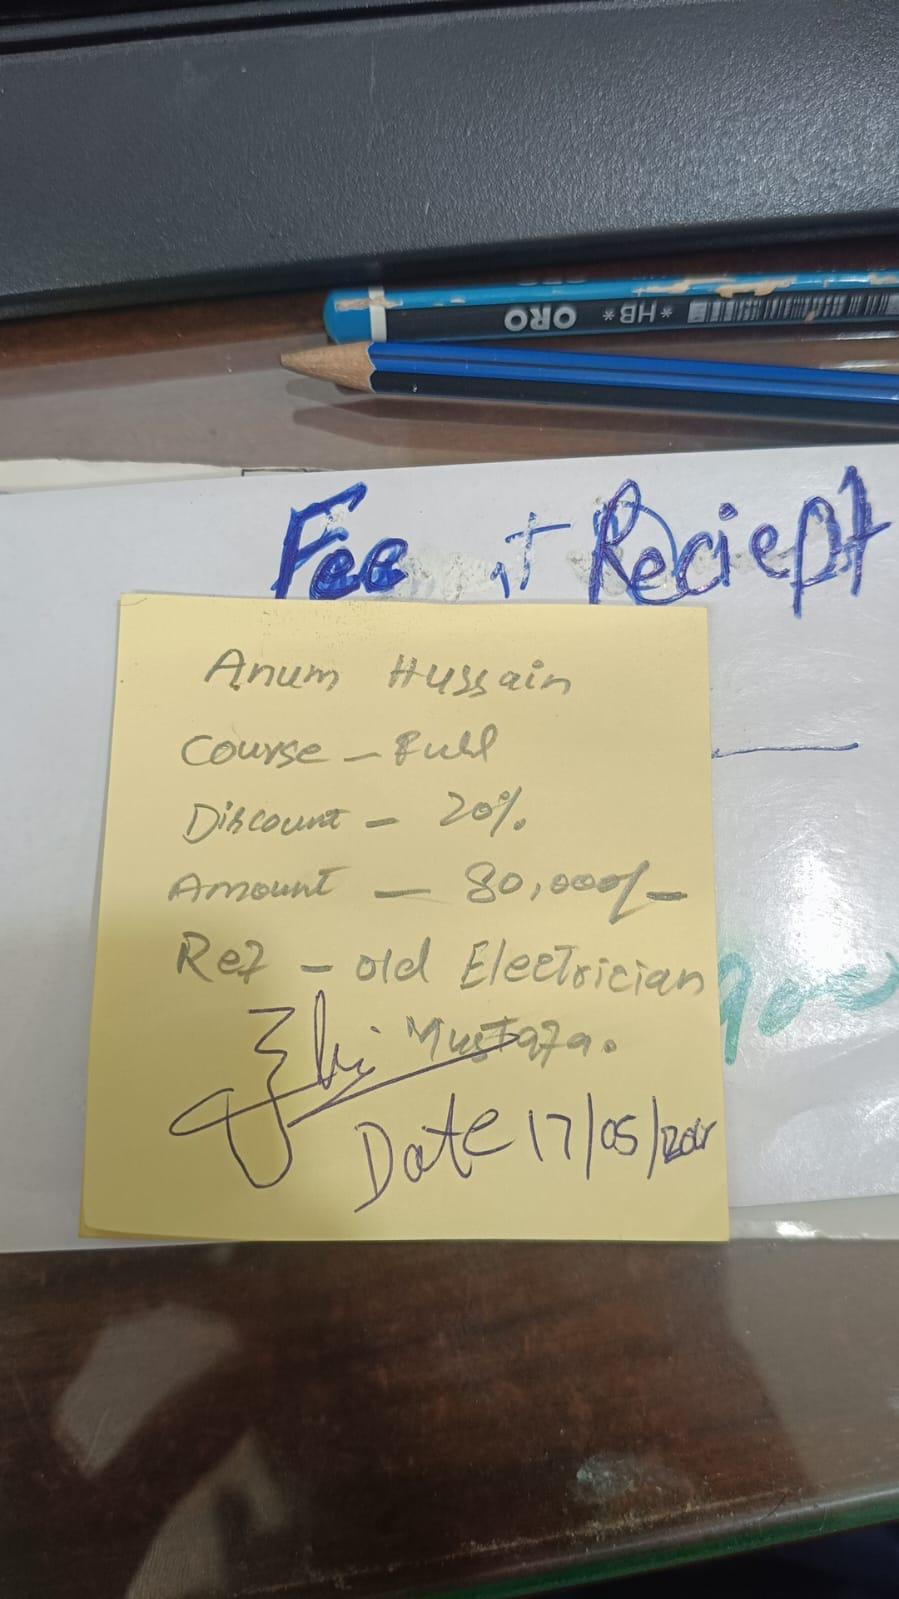 ORO *HB*
Fee Reciept
Anum Hussain
Course - Full
Discount - 20%.
Amount - 80,000/-
Ref - old Electrician
Mustafa.
Date 17/05/